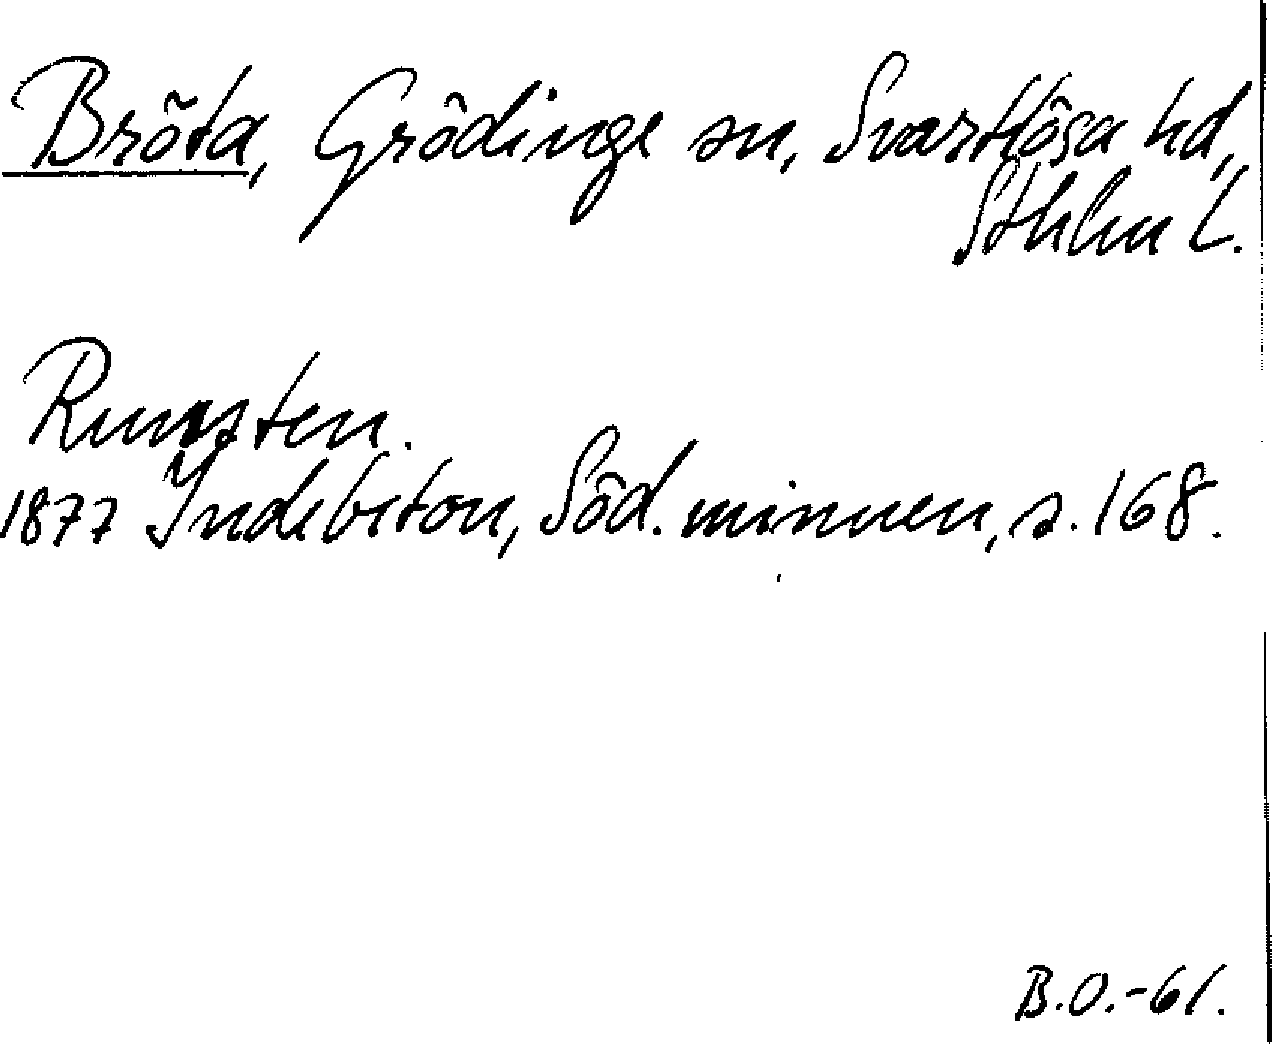 Bröta, Grödinge sn, Svartlösa hd,
Sthlm l.
Runsten.
1877 Indebetou, Söd. minnen, s. 168.
B.O.-61.